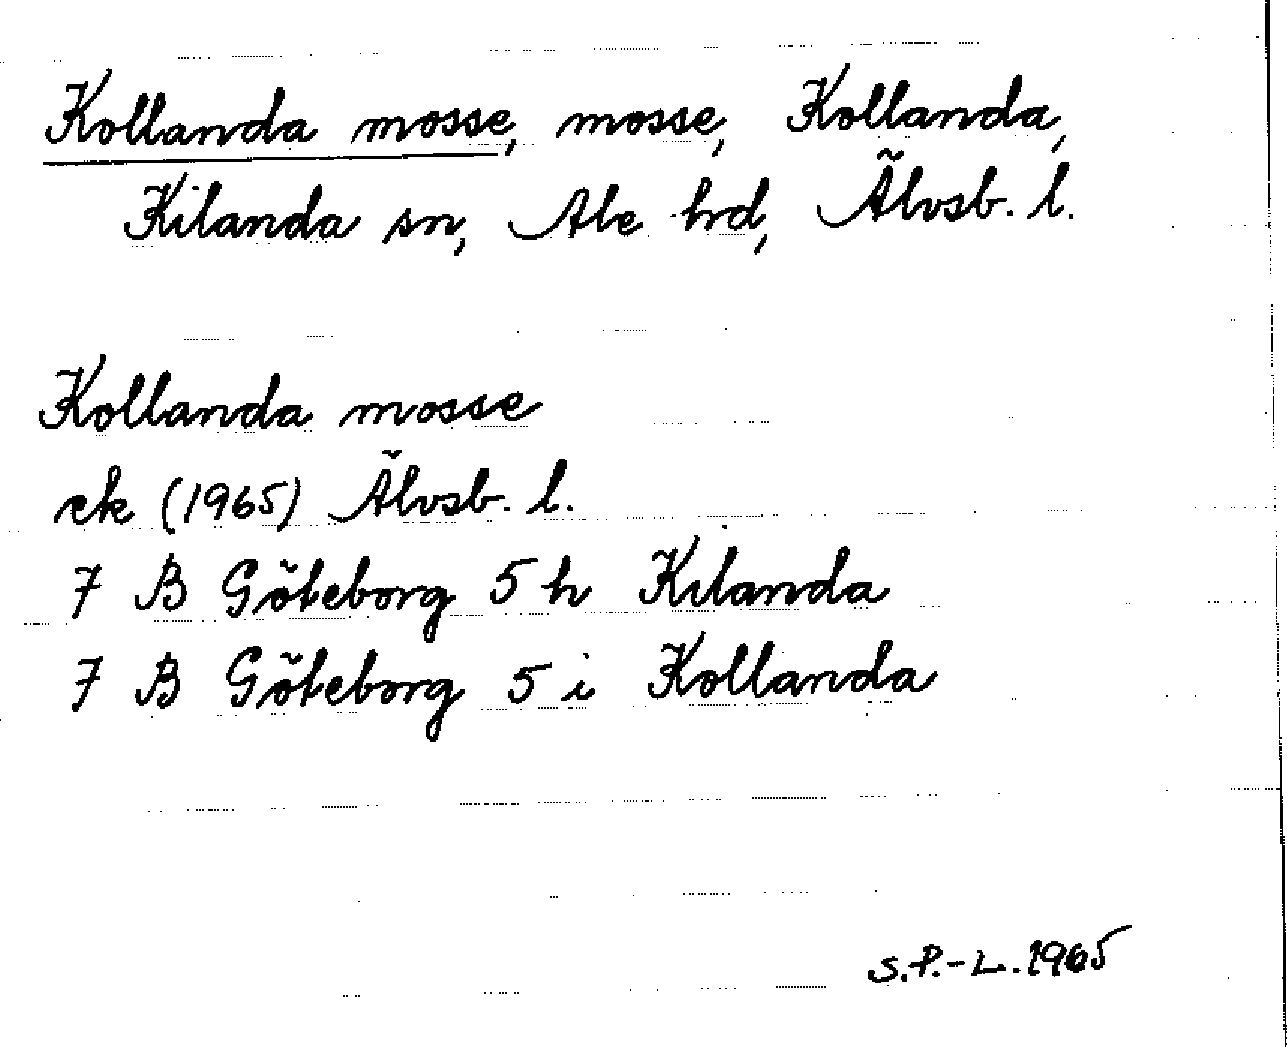 Kollanda mosse, mosse, Kollanda,
Kilanda sn, Ale hd, Älvsb. l.
Kollanda mosse
ek (1965) Älvsb. l.
7 B Göteborg 5 h Kilanda
7 B Göteborg 5 i Kollanda
S.P.-L. 1965